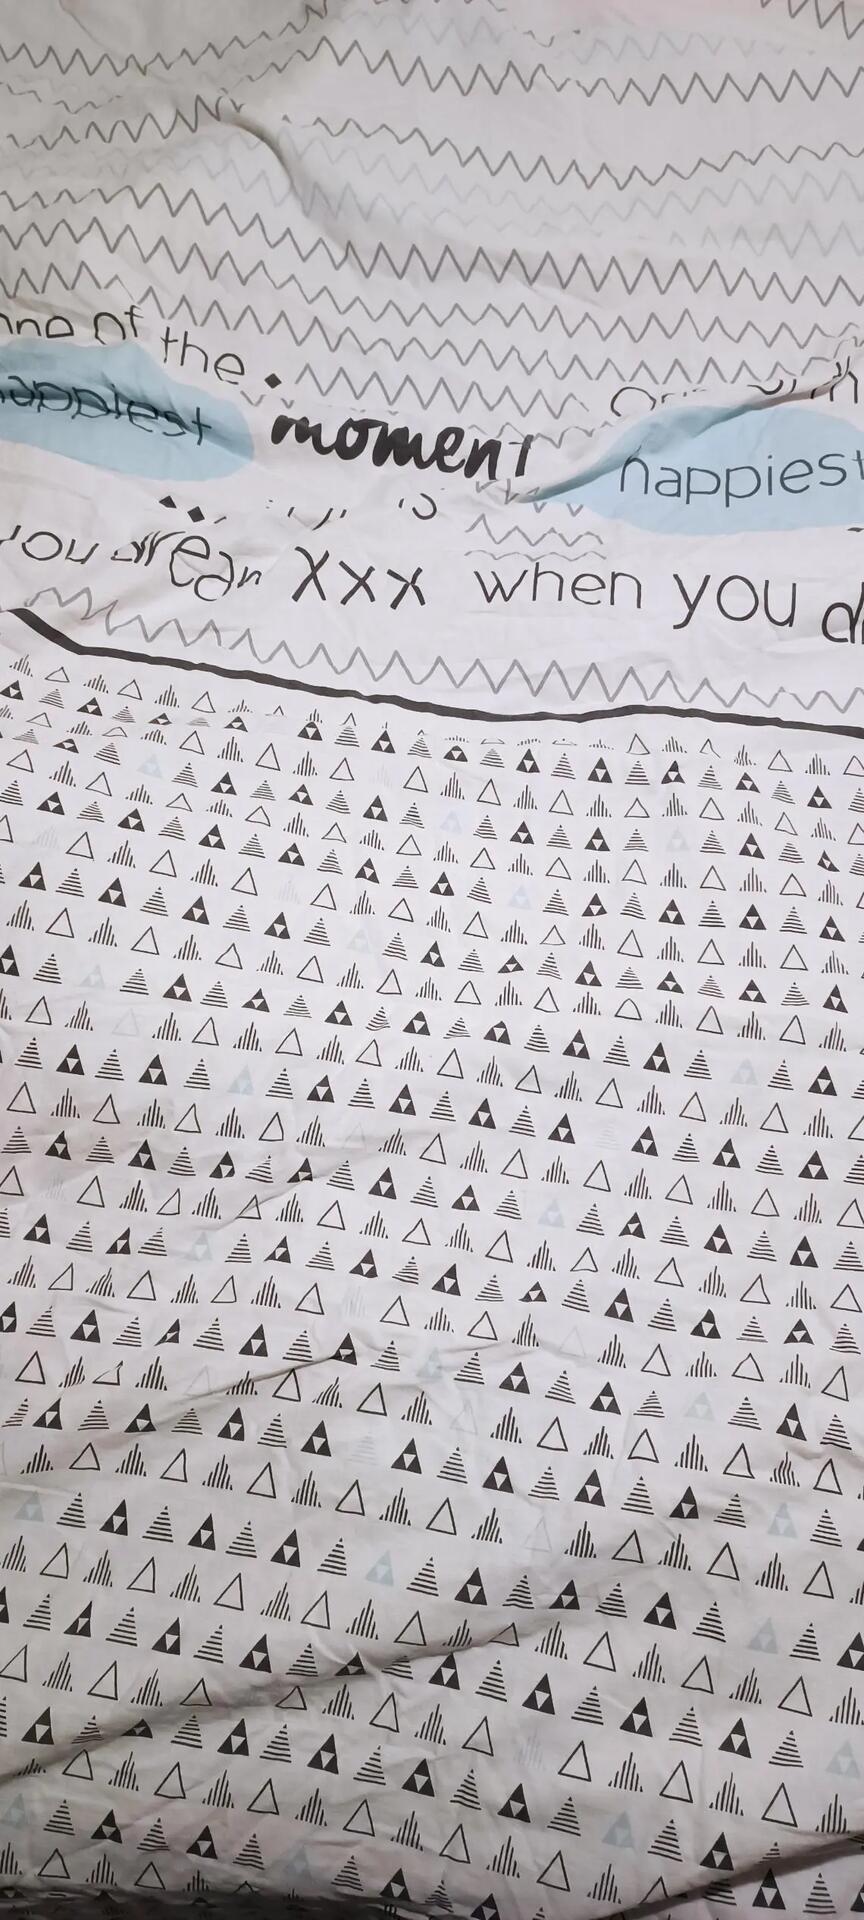 of the
happiest
moment
happiest
you dream xxx when you